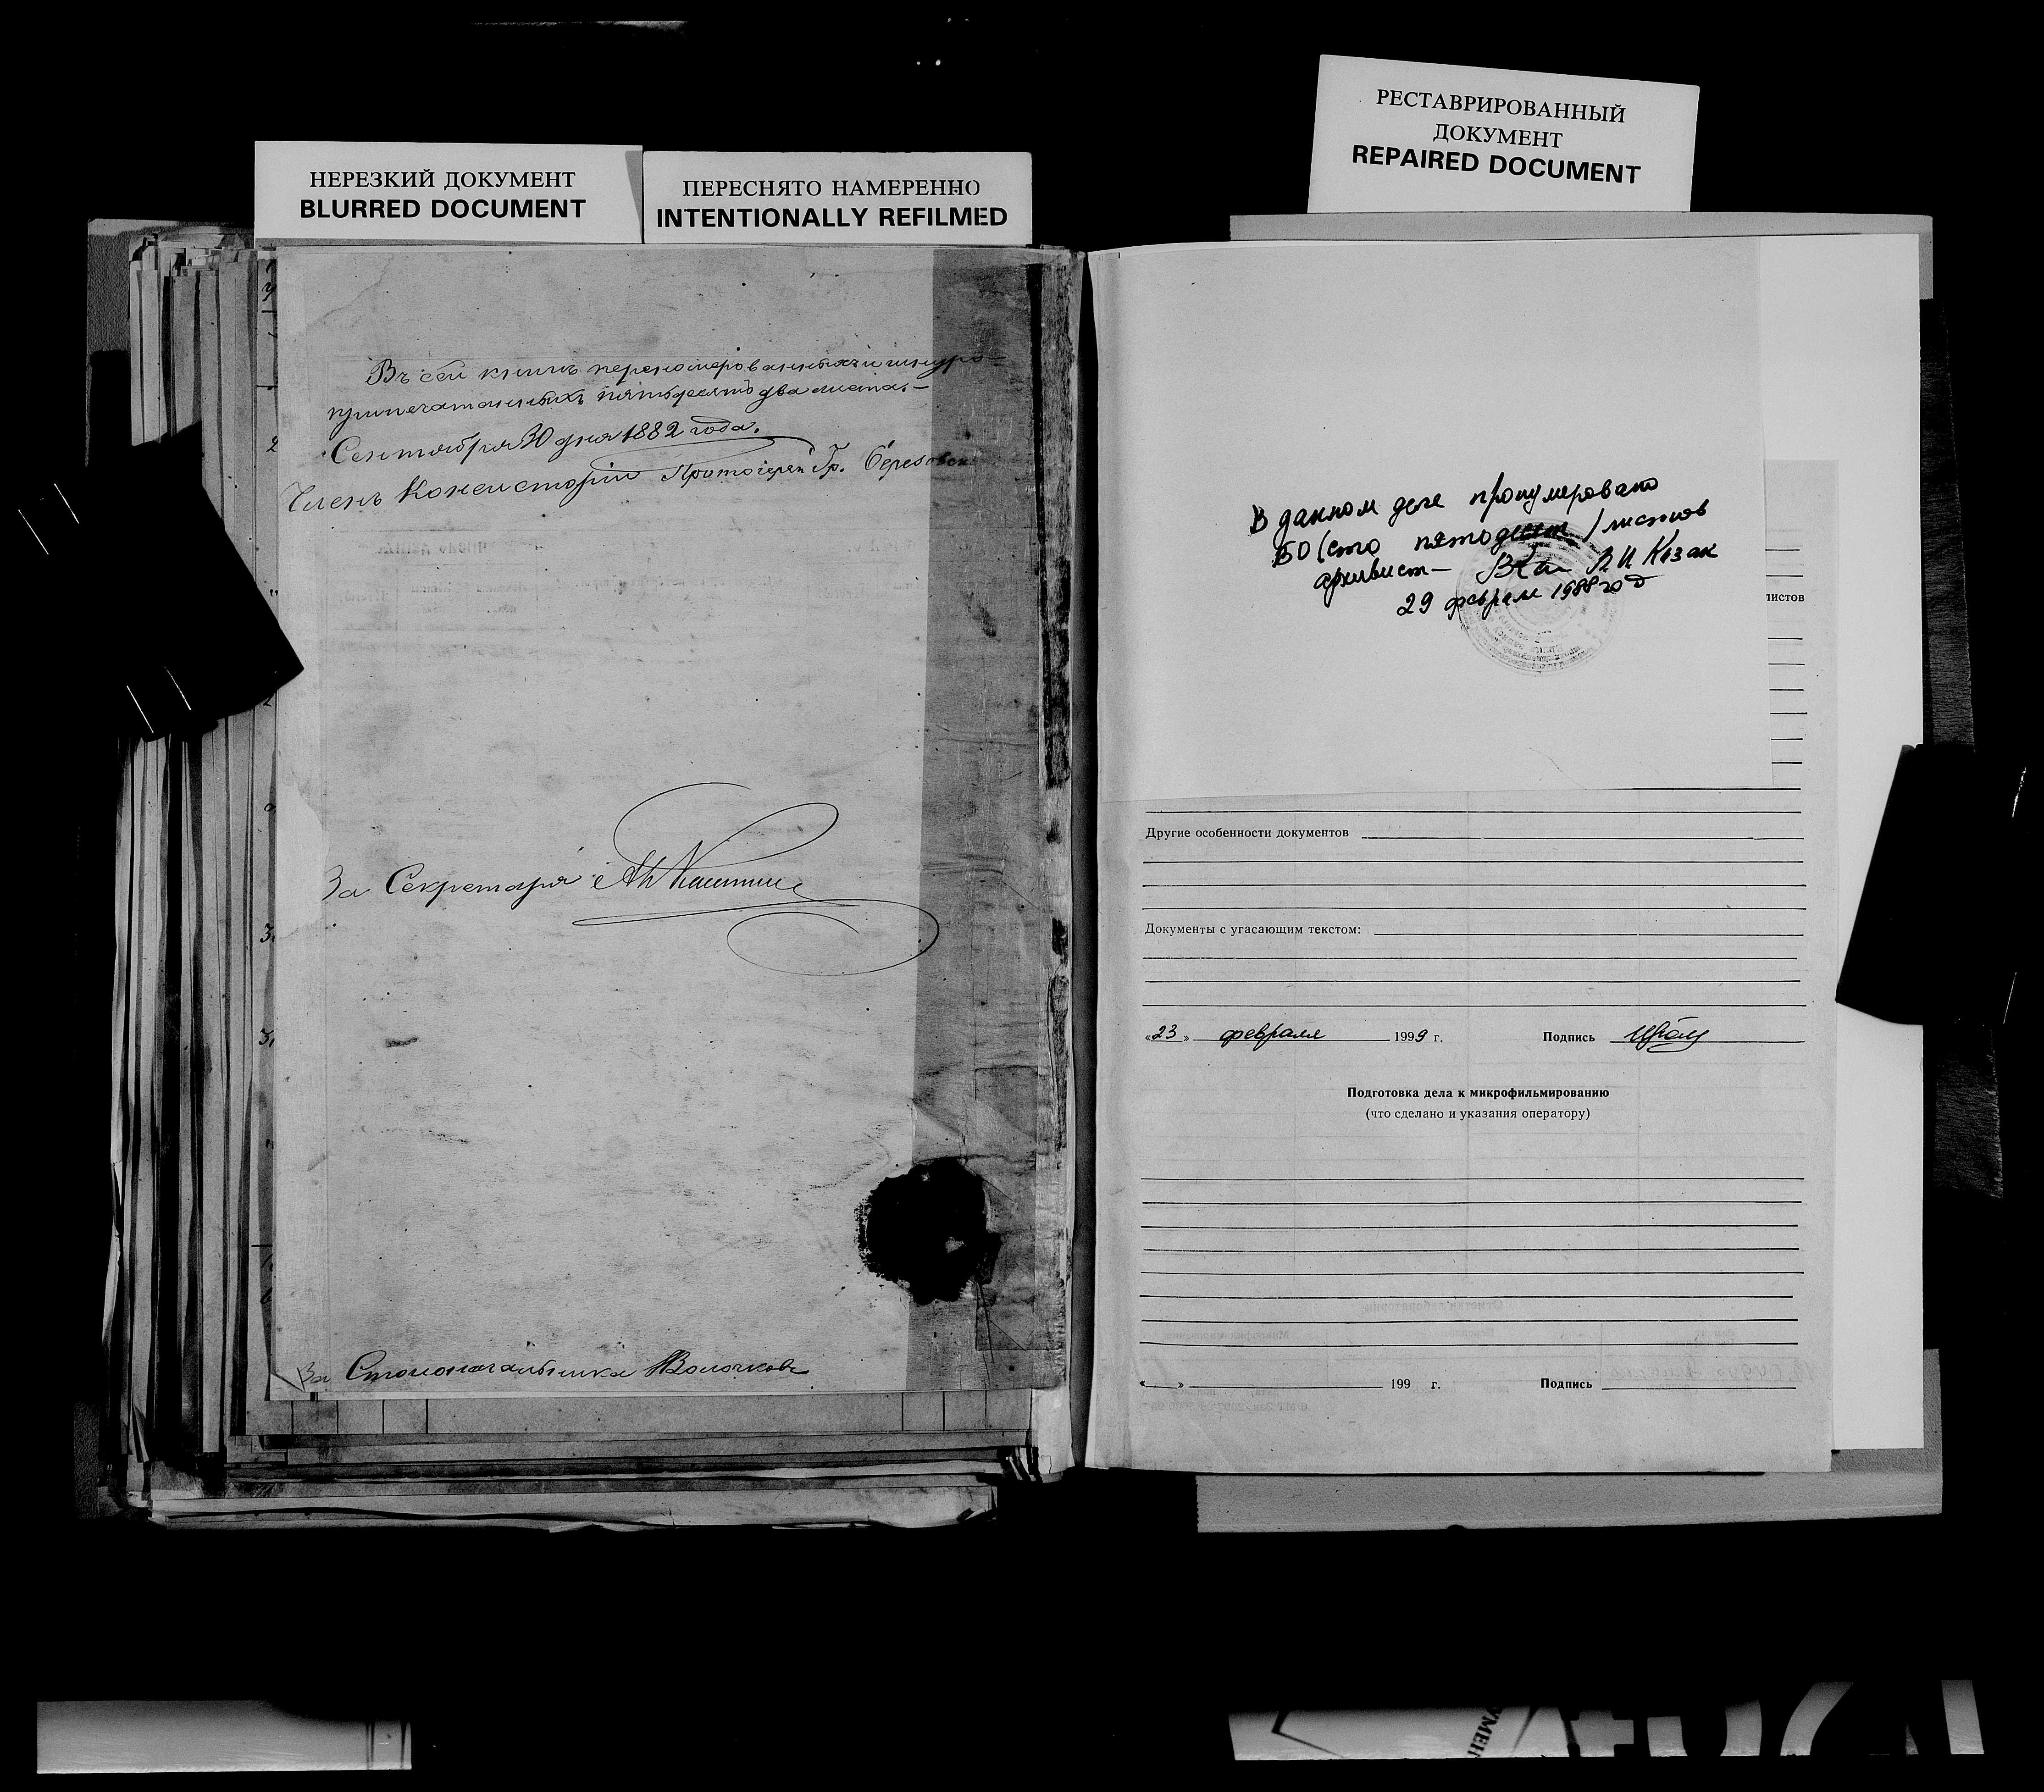 НЕРЕЗКИЙ ДОКУМЕНТ
BLURRED DOCUMENT
ПЕРЕСНЯТО НАМЕРЕННО
INTENTIONALLY REFILMED
РЕСТАВРИРОВАННЫЙ
ДОКУМЕНТ
REPAIRED DOCUMENT
Въ сей книгѣ переномерованныхъ и шнуро-
припечатанныхъ пятьдесятъ два листа.-
Сентября 30 дня 1882 года.
Членъ Консисторіи Протоіерей Гр. Березовск
За Секретаря
За Столоначальника Волочковъ
В данном деле пронумеровано
150 (сто пятьдесят) листов
архивист- В И Козак
29 февраля 1988 год
листов
Другие особенности документов
Документы с угасающим текстом:
«23» февраля 1999 г. Подпись
Подготовка дела к микрофильмированию
(что сделано и указания оператору)
« » 199 г. Подпись